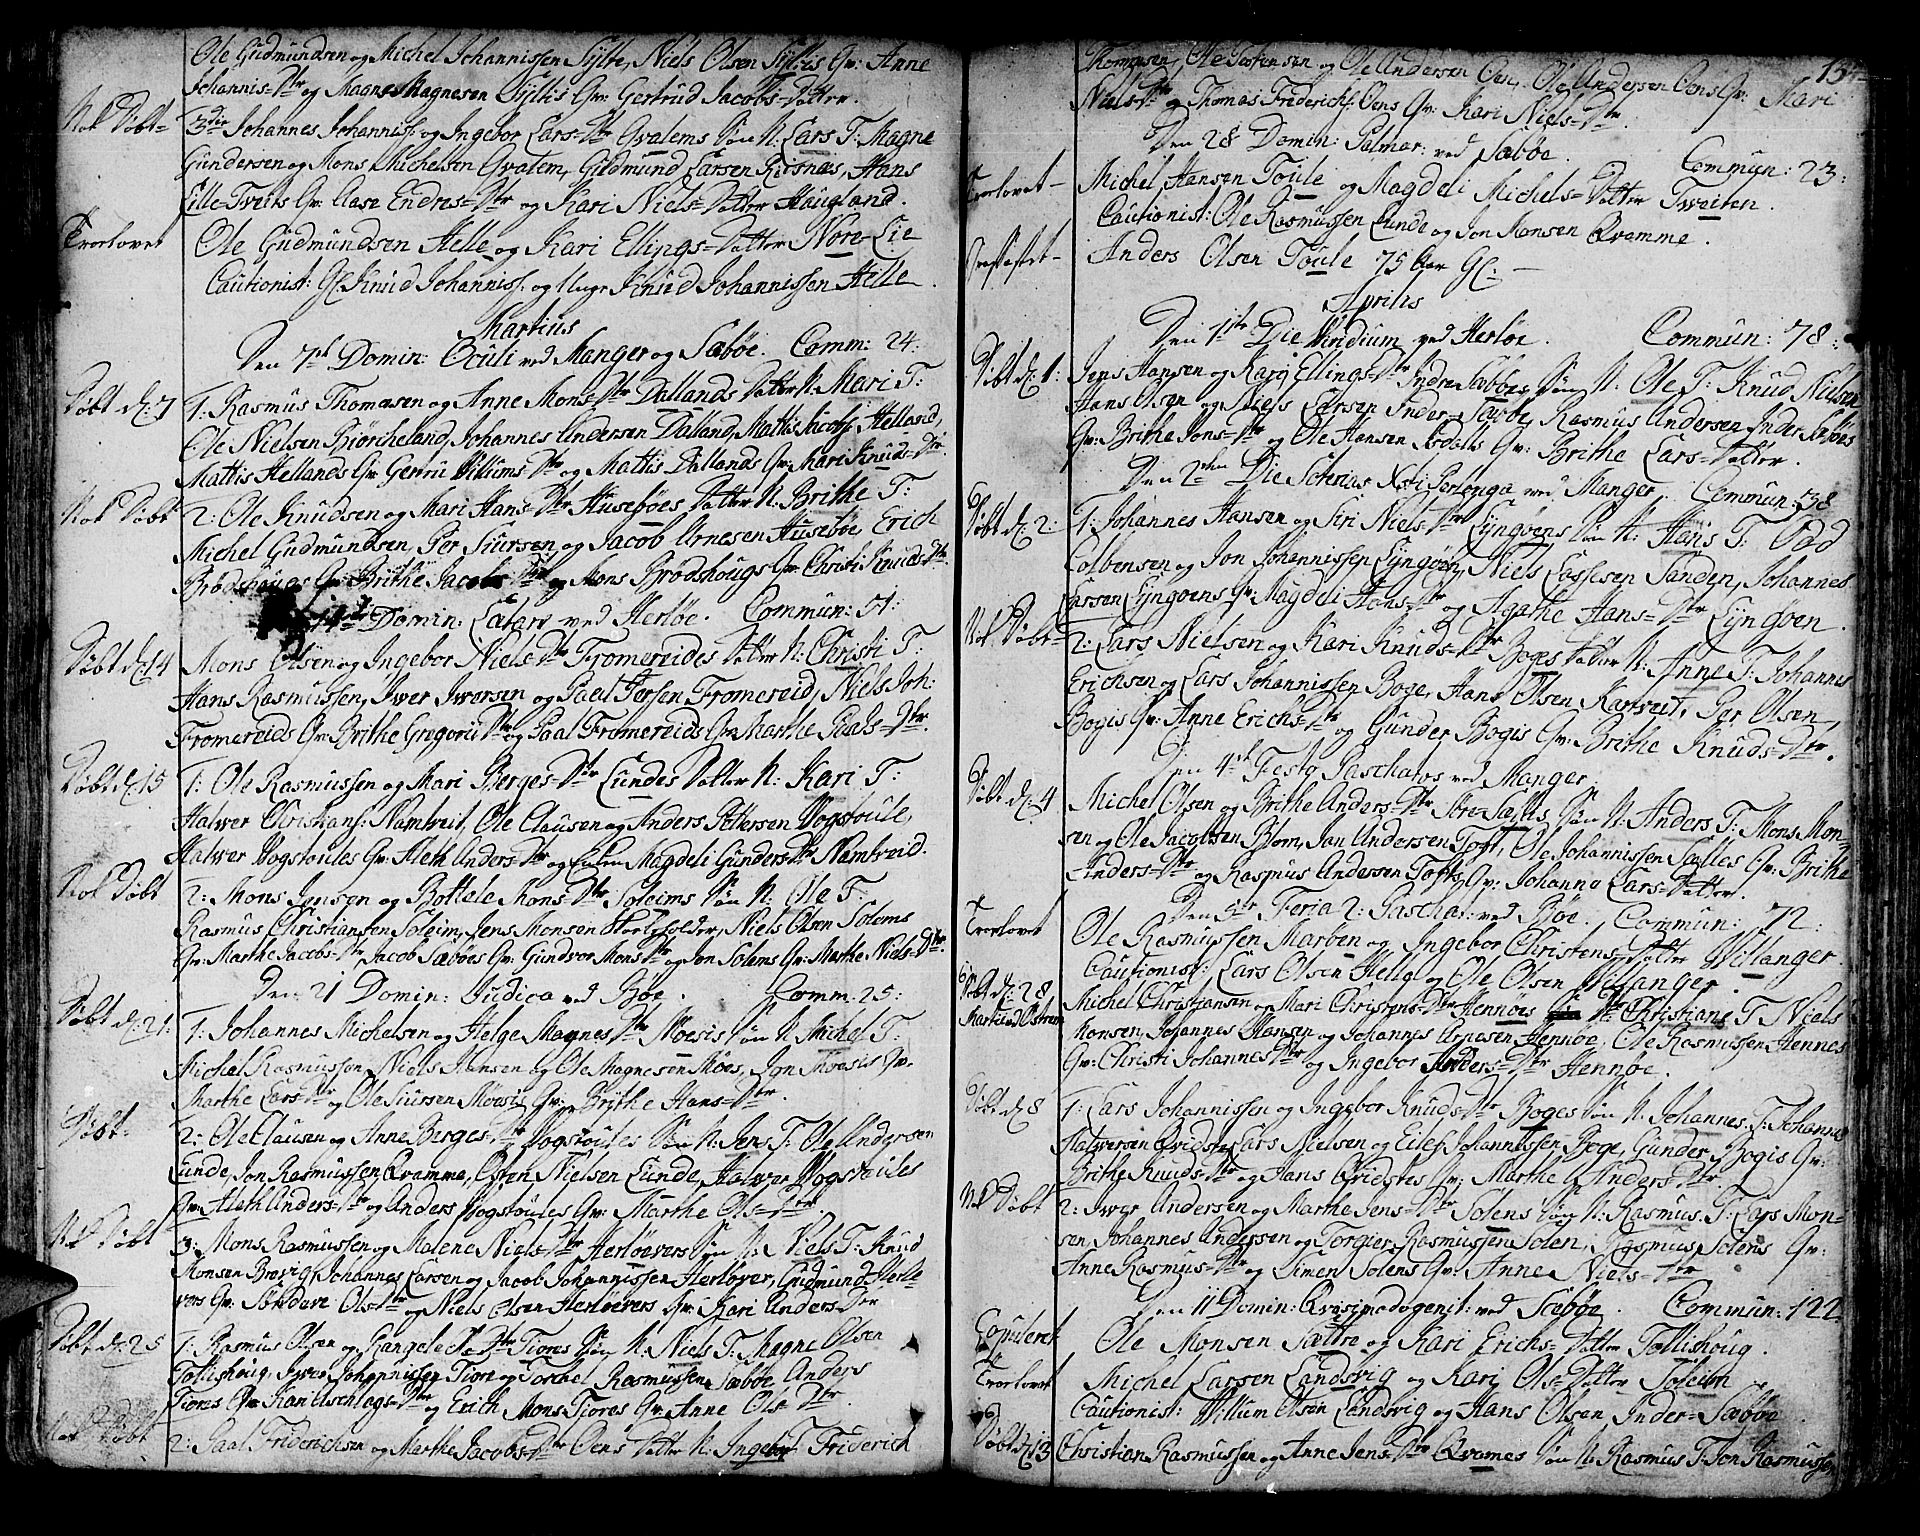 Ole Gudmundsen og Michel Johannissen Sylte, Niels Olsen Syltis Qv: Anne
Johannis=Dtr og Magne Magnesen Syltis Qv: Gertrud Jacobs=Datter.
Nok Døbt= 3die Johannes Johanniss: og Ingebor Lars=Dtr Qvalems Søn N: Lars T: Magne
Gundersen og Mons Michelsen Qvalem, Gudmund Larsen Risnæs, Hans
Lille Tveits Qv: Aase Endres=Dtr og Kari Niels=Datter Haugland.
Trorlovet Ole Gudmundsen Helle og Kari Ellings=Datter Nore Lie
Cautionist: Gl: Knud Johanniss: og Unge Knud Johannissen Helle.
Martius
Den 7de Domin: Oculi ved Manger og Sæbøe. Comm: 24:
Døbt d: 7 1: Rasmus Thomesen og Anne Mons=Dtr Dallands Datter N: Mari T:
Ole Nielsen Biørcheland, Johannes Andersen Dalland, Mattis Jacobs: Helland,
Mattis Hellands Qv: Gerru Villums Dtr og Mattis Dallands Qv: Mari Knuds=Dtr.
Nok Døbt 2: Ole Knudsen og Mari Hans=Dtr Husebøes Datter N: Brithe T:
Michel Gudmundsen, Per Siursen og Jacob Arnesen Husebøe, Erich
Brødshougs Qv: Brithe Jacobs Dtr og Mons Brødshougs Qv: Christi Knuds=Dtr.
Domin: Lætare ved Herløe. Commun: 51:
Døbt d: 14 Mons Olsen og Ingebor Niels=Dtr Fromereides Datter N: Christi T:
Hans Rasmussen, Iwer Iwersen og Paal Persen Fromereid, Niels Joh:
Fromereids Qv: Brithe Gregorii Dtr og Paal Fromereids Qv: Marthe Paals=Dtr.
Døbt d: 15 1: Ole Rasmussen og Mari Berges=Dtr Lundes Datter N: Kari T:
Halwer Christians: Namtveit, Ole Clausen og Anders Pettersen Vogstoule,
Halwer Vogstoules Qv: Aleth Anders=Dtr og Magdeli Gunders=Dtr Namtveid.
Nok Døbt 2: Mons Jonsen og Bottele Mons=Dtr Soleims Søn N: Ole T:
Rasmus Christiansen Soleim, Jens Monsen, Niels Olsen Solems
Qv: Marthe Jacobs=Dtr, Jacob Sæbøes Qv: Gundvor Mons Dtr og Jon Solems Qv: Marthe Niels=Dtr.
Den 21 Domin: Judica ved Bøe. Comm: 25:
Døbt d: 21: 1: Johannes Michelsen og Helge Magnes=Dtr Møesis Søn N: Michel T:
Michel Rasmussen, Niels Hansen og Ole Magnesen Møes, Jon Møesis Qv:
Marthe Lars=Dtr og Ole Siursen Møesis Qv: Brithe Hans=Dtr.
Døbt= 2: Ole Clausen og Anne Berges=Dtr Vogstoules Søn N: Jens T: Ole Andersen
Lunde, Jon Rasmussen Qvamme, Osten Nielsen Lunde, Halwer Vogstoules
Qv: Aleth Anders=Dtr og Anders Vogstoules Qv: Marthe Ols=Dtr.
Nok Døbt 3: Mons Rasmussen og Malene Niels=Dtr Herløevers Søn N: Niels T: Knud
Monsen Brevig, Johannes Larsen og Jacob Johannissen Herløver, Gudmund Herlø
vers Qv: Sønneve Ols=Dtr og Niels Olsen Herløevers Qv: Kari Anders=Dtr
Døbt d: 25 1: Rasmus Olsen og Rangele Dtr Tiores Søn N: Niels T: Magne Olsen
Tollishoug, Iwer Johannissen Tiore og Torchel Rasmussen Sæbøe, Anders
Tiores Qv: Kari Aschlags=Dtr og Erich Mons Tiores Qv: Anne Ols=Dtr.
Nok Døbt 2: Paal Friderichsen og Marthe Jacobs=Dtr Oens Datter N: Ingebor T: Friderich
154
Thomesen, Ole Tostensen og Ole Andersen Oen, Ole Andersen Oens Qv: Mari
Niels=Dtr og Thomas Frederichs: Oens Qv: Kari Niels=Dtr.
Den 28 Domin: Palmar: ved Sæbøe. Commun: 23:
Trorlovet= Michel Hansen Toule og Magdeli Michels=Datter Tweiten.
Cautionist: Ole Rasmussen Lunde og Jon Monsen Qvamme.
Anders Olsen Toule 75 Aar Gl:
Aprilis
Den 1ste Die Viridium ved Herløe. Commun: 78:
Døbt d: 1: Jens Hansen og Kari Ellings=Dtr Indre Sæbøes Søn N: Ole T: Knud Nielsen
Hans Olsen og Niels Larsen Inder=Sæbøe, Rasmus Andersen Inder Sæbøes
Qv: Brithe Jons=Dtr og Ole Hansen Qv: Brithe Lars=Datter.
Den 2den Die Xsti ved Manger. Commun: 38
Døbt d: 2: 1: Johannes Hansen og Siri Niels=Dtr Lyngøens Søn N: Hans T: Odd
Colbensen og Jon Johannissen Lyngøen, Niels Lassesen Sanden, Johannes
Larsen Lyngøens Qv: Magdeli Hans=Dtr og Agathe Hans=Dtr Lyngøen.
Nok Døbt= 2: Lars Nielsen og Kari Knuds=Dtr Boges Datter N: Anne T: Johannes
Erichsen og Lars Johannissen Boge, Hans Olsen Kartveit, Per Olsen
Bogis Qv: Anne Erichs=Dtr og Gunder Bogis Qv: Brithe Knuds=Dtr.
Den 4de Festo Paschatos ved Manger.
Døbt d: 4 Michel Olsen og Brithe Anders=Dtr Søn N: Anders T: Mons Mon=
sen og Ole Jacobsen Blom, Jan Andersen Toft, Ole Johannissen Sælles Qv: Brithe
Anders=Dtr og Rasmus Andersen Tofts Qv: Johanna Lars=Datter.
Den 5te Feria 2: Pascha: ved Bøe. Commun: 72:
Trorlovet Ole Rasmussen Marøen og Ingebor Christens Datter Villanger
Cautionist: Lars Olsen Helle og Ole Olsen Villanger.
Døbt d: 28 Michel Christiansen og Mari Christens=Dtr Hennøes N: Christians T: Niels
Martii Monsen, Johannes Hansen og Johannes Arnesen Hennøe, Ole Rasmussen Hennøes
Qv: Christi Johannes Dtr og Ingebor Anders=Dtr Hennøe.
Døbt d: 8 1: Lars Johannissen og Ingebor Knuds=Dtr Boges Søn N: Johannes T: Johannes
Halwersen Qvidste, Lars Nielsen og Eilef Johannissen Boge, Gunder Bogis Qv:
Brithe Knuds=Dtr og Hans Qvidstes Qv: Marthe Anders=Dtr
Nok Døbt 2: Iwer Andersen og Marthe Jens=Dtr Solens Søn N: Rasmus T: Lars Mon=
sen, Johannes Andersen og Torgier Rasmussen Solen, Rasmus Solens Qv:
Anne Rasmus=Dtr og Simen Solens Qv: Anne Niels=Dtr
Den 11 Domin: Qvasimodogenit: ved Sæbøe. Commun: 122.
Copuleret Ole Monsen Sættre og Kari Erichs=Datter Tollishoug.
Trorlovet Michel Larsen Landsvig og Kari Ols=Datter Soleim
Cautionist: Willum Olsen Landsvig og Hans Olsen Inder=Sæbøe.
Døbt d: 13 Christian Rasmussen og Anne Jens=Dtr Qvames Søn N: Rasmus T: Jon Rasmussen